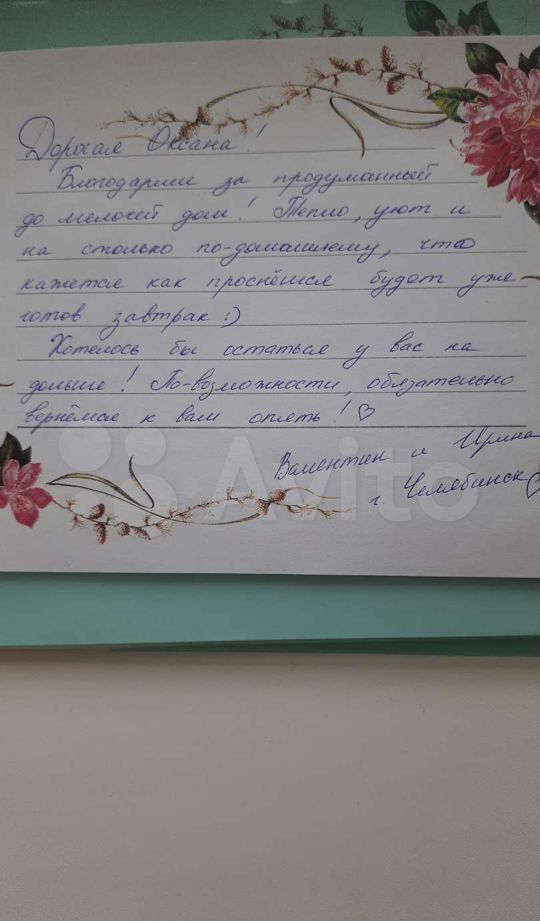 Дорогая Оксана!
Благодарим за продуманный
до мелочей дом! Тепло, уют и
на столько по-домашнему, что
кажется как проснёшся будет уже
готов завтрак :)
Хотелось бы остаться у вас на
дольше! По-возможности, обязательно
вернёмся к вам опять! ♡
Валентин и Ирина
г. Челябинск ♡
Avito